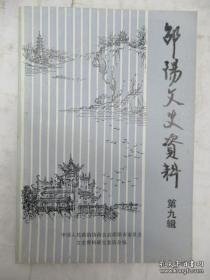 邵陽文史资料
第九辑
中国人民政治协商会议邵阳市委员会
文史资料研究委员会编